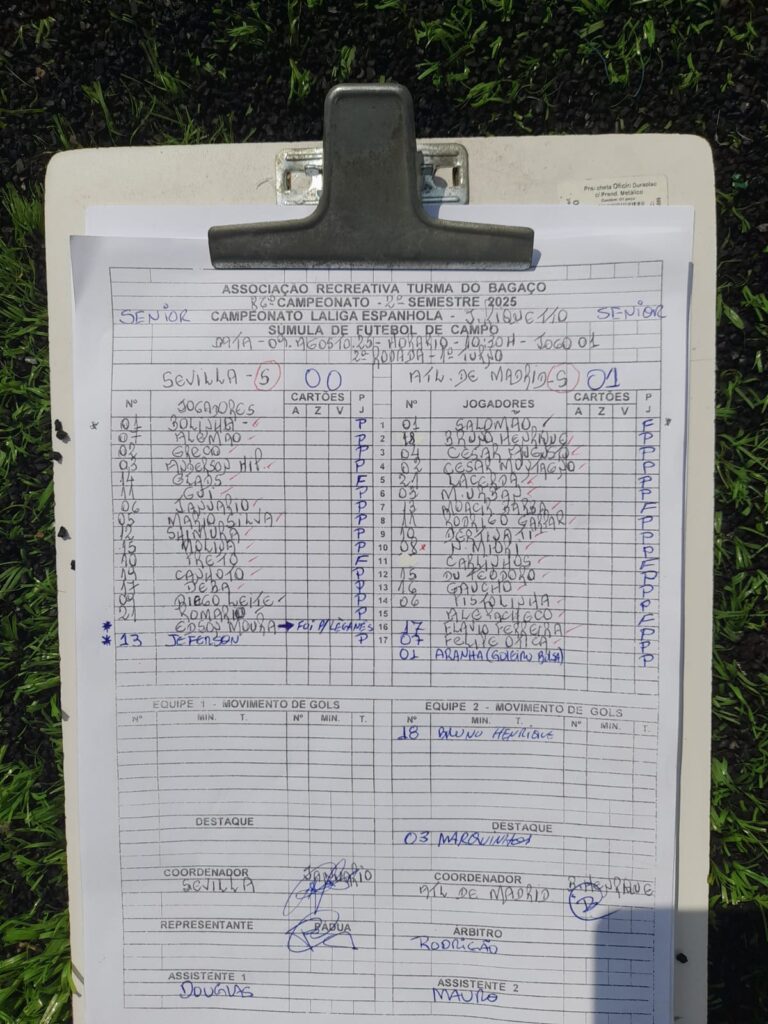 Prancheta Oficio Duraplac
c/ Prend. Metálico
ASSOCIAÇÃO RECREATIVA TURMA DO BAGAÇO
86º CAMPEONATO - 2º SEMESTRE 2025
SENIOR CAMPEONATO LALIGA ESPANHOLA - J. RIQUETTO SENIOR
SÚMULA DE FUTEBOL DE CAMPO
DATA - 09. AGOSTO. 25 - HORARIO - 10:30H - JOGO 01
2ª RODADA - 1º TURNO
SEVILLA - S 00 ATL. DE MADRID - S 01
Nº JOGADORES CARTÕES A Z V P J Nº JOGADORES CARTÕES A Z V P J
01 BOLINHA P 1 01 SALOMÃO F
07 ALEMÃO P 2 18 BRUNO HENRIQUE P
02 GRECO P 3 04 CESAR P
03 ANDERSON P 4 02 CESAR P
14 F 5 21 LACERDA P
11 GUI P 6 03 P
06 JANUARIO P 7 13 MOACIR F
05 MARIO SILVA P 8 11 RODRIGO P
12 SHIMURA P 9 10 P
15 MOLINA P 10 08 N. MIORI P
10 PRETO F 11 CARLINHOS F
19 CANHOTO P 12 15 DU TEODORO P
17 DEBA P 13 16 GAUCHO P
09 DIEGO LEITE P 14 06 PISTOLINHA F
21 ROMARIO P 15 ALE PACHECO F
* EDSON MOURA → FOI P/ LEGANES 16 17 FLAVIO FERREIRA P
* 13 JEFERSON P 17 07 FELIPE P
01 ARANHA (GOLEIRO BOLSA) P
EQUIPE 1 - MOVIMENTO DE GOLS EQUIPE 2 - MOVIMENTO DE GOLS
Nº MIN. T. Nº MIN. T. Nº MIN. T. Nº MIN. T.
18 BRUNO HENRIQUE
DESTAQUE DESTAQUE
03 MARQUINHOS
COORDENADOR JANUARIO COORDENADOR B. HENRIQUE
SEVILLA ATL. DE MADRID
REPRESENTANTE PADUA ÁRBITRO
RODRIGÃO
ASSISTENTE 1 ASSISTENTE 2
DOUGLAS MAURO